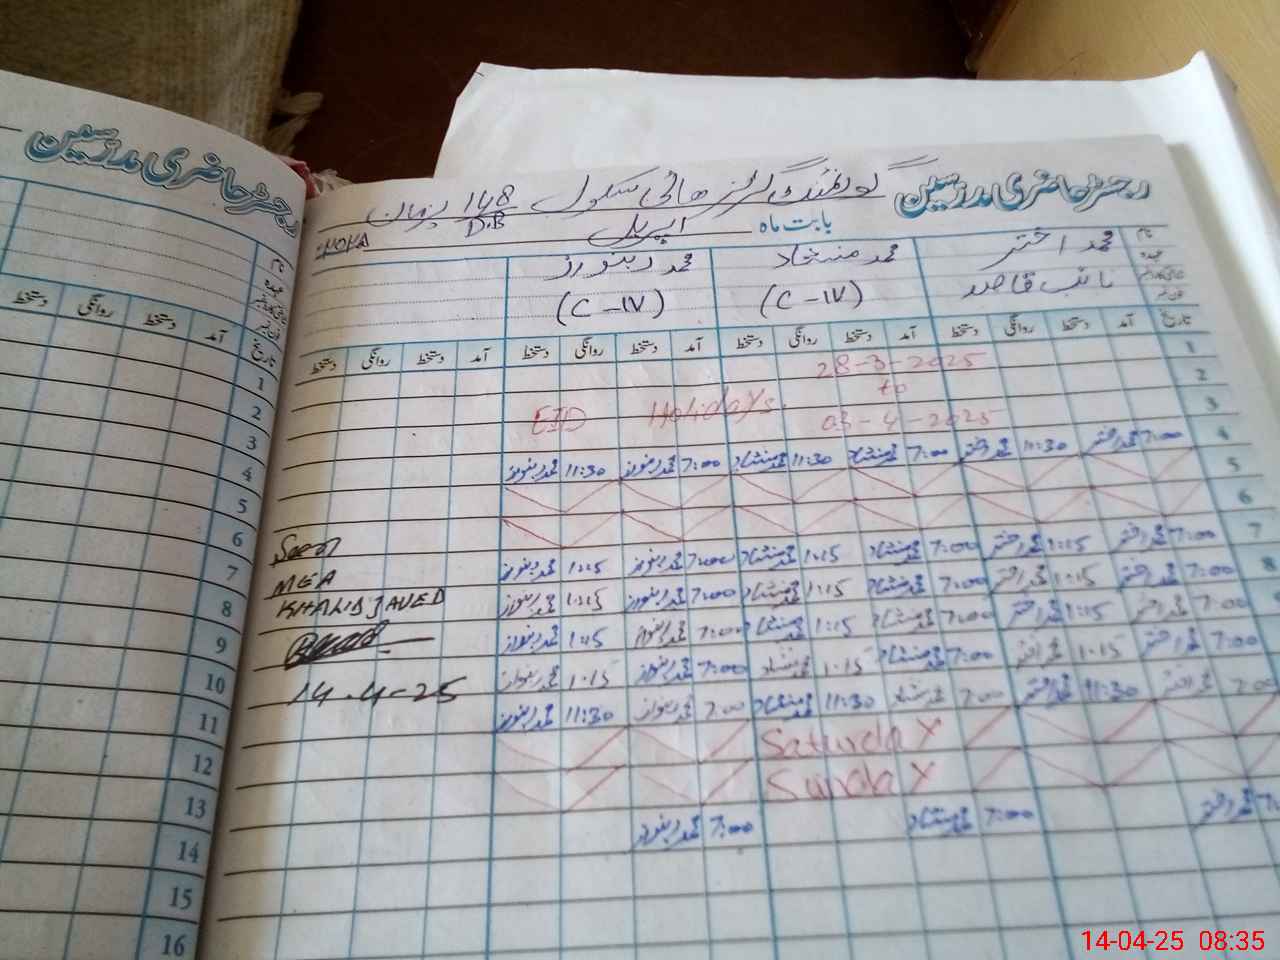 رجسٹر حاضری مدرسین
نام
عہدہ
تاریخ
آمد دستخط روانگی دستخط
1
2
3
4
5
6
7
8
9
10
11
12
13
14
15
16
رجسٹر حاضری مدرسین گورنمنٹ گرلز ھائی سکول 148
D.B
بابت ماہ اپریل
نام محمد اختر محمد منشاد محمد ربنواز
عہدہ نائب قاصد (C-IV) (C-IV)
تاریخ آمد دستخط روانگی دستخط آمد دستخط روانگی دستخط آمد دستخط روانگی دستخط آمد دستخط روانگی دستخط
1 28-3-2025
2 to
EID Holidays
3 03-4-2025
4 7:00 محمد اختر 11:30 محمد اختر 7:00 محمد منشاد 11:30 محمد منشاد 7:00 محمد ربنواز 11:30 محمد ربنواز
5
6
7 7:00 محمد اختر 1:15 محمد اختر 7:00 محمد منشاد 1:15 محمد منشاد 7:00 محمد ربنواز 1:15 محمد ربنواز
8 7:00 محمد اختر 1:15 محمد اختر 7:00 محمد منشاد 1:15 محمد منشاد 7:00 محمد ربنواز 1:15 محمد ربنواز
7:00 محمد اختر 1:15 محمد اختر 7:00 محمد منشاد 1:15 محمد منشاد 7:00 محمد ربنواز 1:15 محمد ربنواز
7:00 محمد اختر 1:15 محمد اختر 7:00 محمد منشاد 1:15 محمد منشاد 7:00 محمد ربنواز 1:15 محمد ربنواز
7:00 محمد اختر 11:30 محمد اختر 7:00 محمد منشاد 11:30 محمد منشاد 7:00 محمد ربنواز 11:30 محمد ربنواز
Saturday
Sunday
محمد اختر 7:00 محمد منشاد 7:00 محمد ربنواز
Seen
MEA
KHALID JAVED
14-4-25
14-04-25 08:35